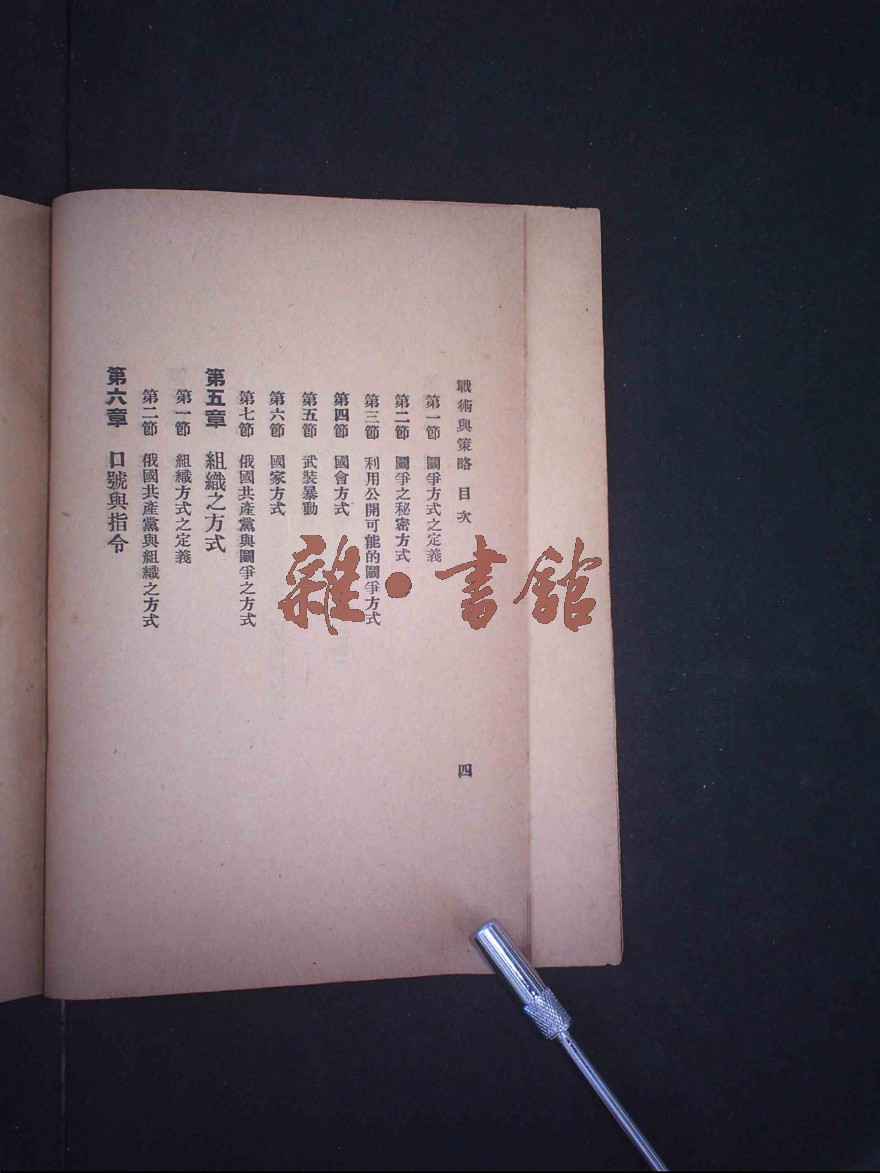 戰術與策略 目次 四
第一節 鬭爭方式之定義
第二節 鬭爭之秘密方式
第三節 利用公開可能的鬭爭方式
第四節 國會方式
第五節 武裝暴動
第六節 國家方式
第七節 俄國共產黨與鬭爭之方式
第五章 組織之方式
第一節 組織方式之定義
第二節 俄國共產黨與組織之方式
第六章 口號與指令
雜·書館